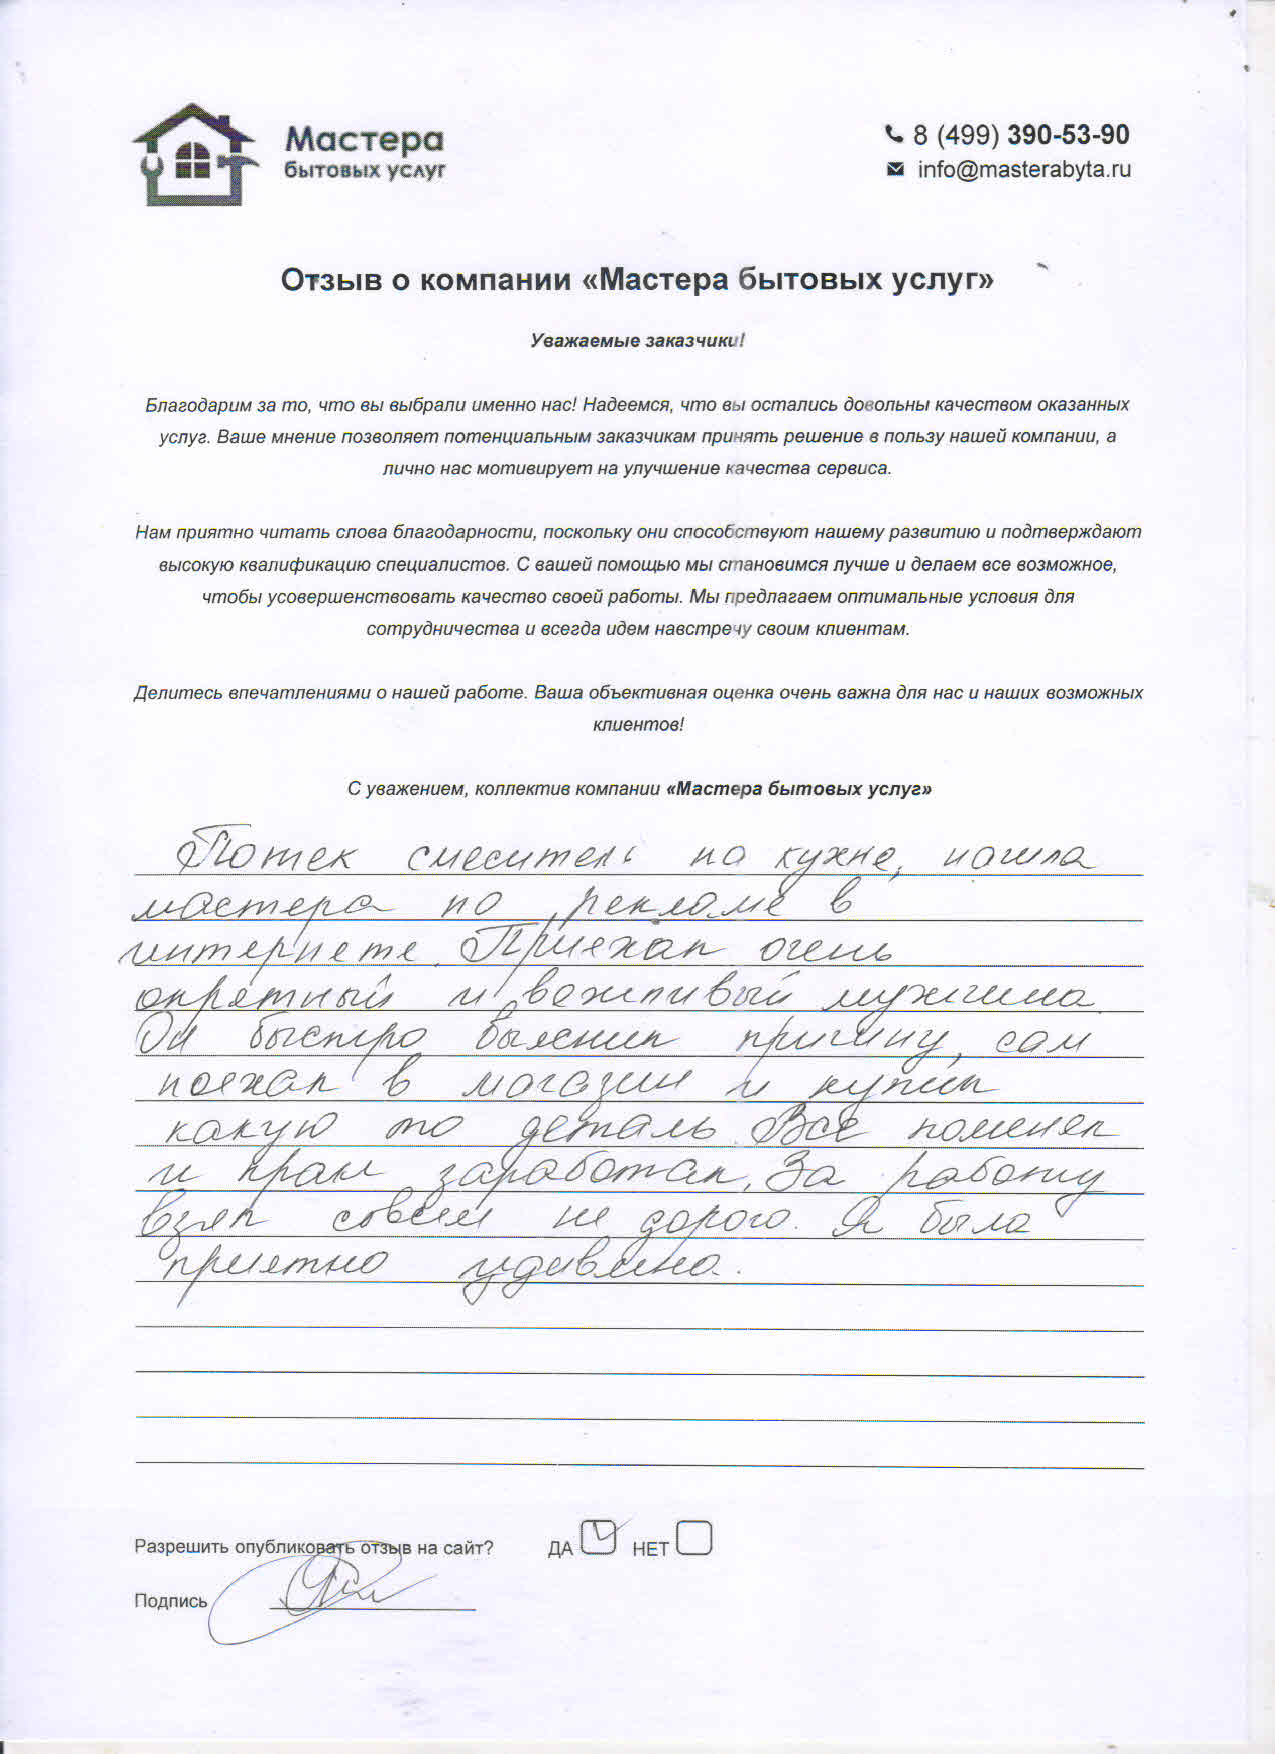 Мастера
бытовых услуг
8 (499) 390-53-90
info@masterabyta.ru
Отзыв о компании «Мастера бытовых услуг»
Уважаемые заказчики!
Благодарим за то, что вы выбрали именно нас! Надеемся, что вы остались довольны качеством оказанных
услуг. Ваше мнение позволяет потенциальным заказчикам принять решение в пользу нашей компании, а
лично нас мотивирует на улучшение качества сервиса.
Нам приятно читать слова благодарности, поскольку они способствуют нашему развитию и подтверждают
высокую квалификацию специалистов. С вашей помощью мы становимся лучше и делаем все возможное,
чтобы усовершенствовать качество своей работы. Мы предлагаем оптимальные условия для
сотрудничества и всегда идем навстречу своим клиентам.
Делитесь впечатлениями о нашей работе. Ваша объективная оценка очень важна для нас и наших возможных
клиентов!
С уважением, коллектив компании «Мастера бытовых услуг»
Потек смеситель на кухне, нашла
мастера по рекламе в
интернете. Приехал очень
опрятный и вежливый мужчина.
Он быстро выяснил причину, сам
поехал в магазин и купил
какую то деталь. Все поменял
и кран заработал. За работу
взял совсем не дорого. Я была
приятно удивлена.
Разрешить опубликовать отзыв на сайт? ДА НЕТ
Подпись